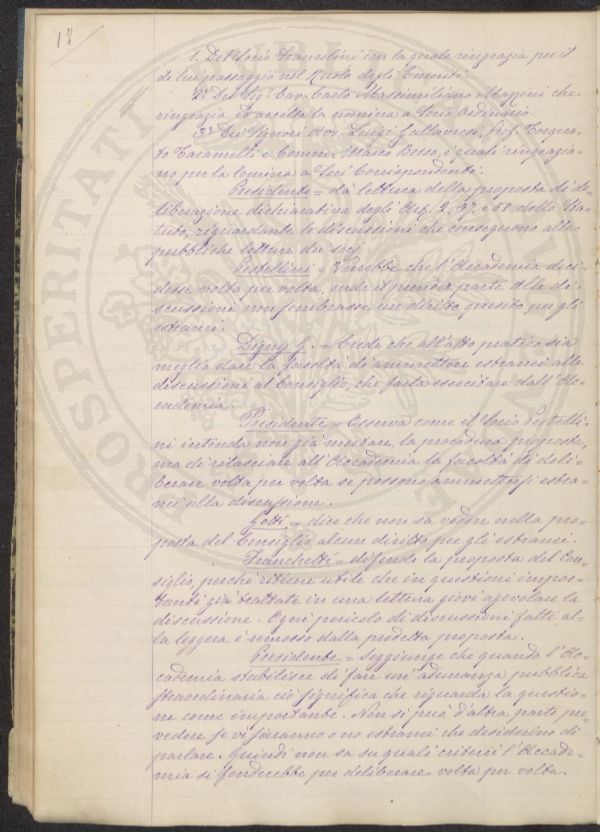 17
1. Del Socio Francolini con la quale ringrazia per il
di lui passaggio nel Ruolo degli Emeriti.
2º Del Sig. Cav. Carlo Massimiliano Mazzini che
ringrazia ed accetta la nomina a Socio Ordinario.
3º Dei Signori Avv. Luigi Prof. Torqua-
to Taramelli e Comm. Marco Besso, i quali ringrazia-
no per la nomina a Soci Corrispondenti.
Presidente = dà lettura della proposta di de-
liberazione dichiarativa degli Art. 2, 37 e 58 dello Sta-
tuto, riguardante le discussioni che conseguono alle
pubbliche letture dei socj
Pestellini = Vorrebbe che l'Accademia deci-
desse volta per volta, onde il prender parte alle di-
scussioni non sembrasse un diritto quesito per gli
estranei.
Digny G. = Crede che all'atto pratico sia
meglio dare la facoltà di ammettere estranei alle
discussioni al Consiglio, che farla esercitare dall'Ac-
cademia.
Presidente = Osserva come il Socio Pestelli-
ni intenda non già mutare, la procedura proposta,
ma di rilasciare all'Accademia la facoltà di deli-
berare volta per volta se possono ammettersi estra-
nei alla discussione.
Gotti = dice che non sa vedere nella pro-
posta del Consiglio alcun diritto per gli estranei.
Franchetti = difende la proposta del Con-
siglio perchè ritiene utile che in questioni impor-
tanti già trattate in una lettura giovi agevolare la
discussione. Ogni pericolo di discussioni fatte al-
la leggera è rimosso dalla predetta proposta.
Presidente = Soggiunge che quando l'Ac-
cademia stabilisce di fare un'adunanza pubblica
straordinaria ciò significa che riguarda la questio-
ne come importante. Non si può d'altra parte pre-
vedere se vi saranno o no estranei che desiderino di
parlare. Quindi non sa su quali criterii l'Accade-
mia si fonderebbe per deliberare volta per volta.